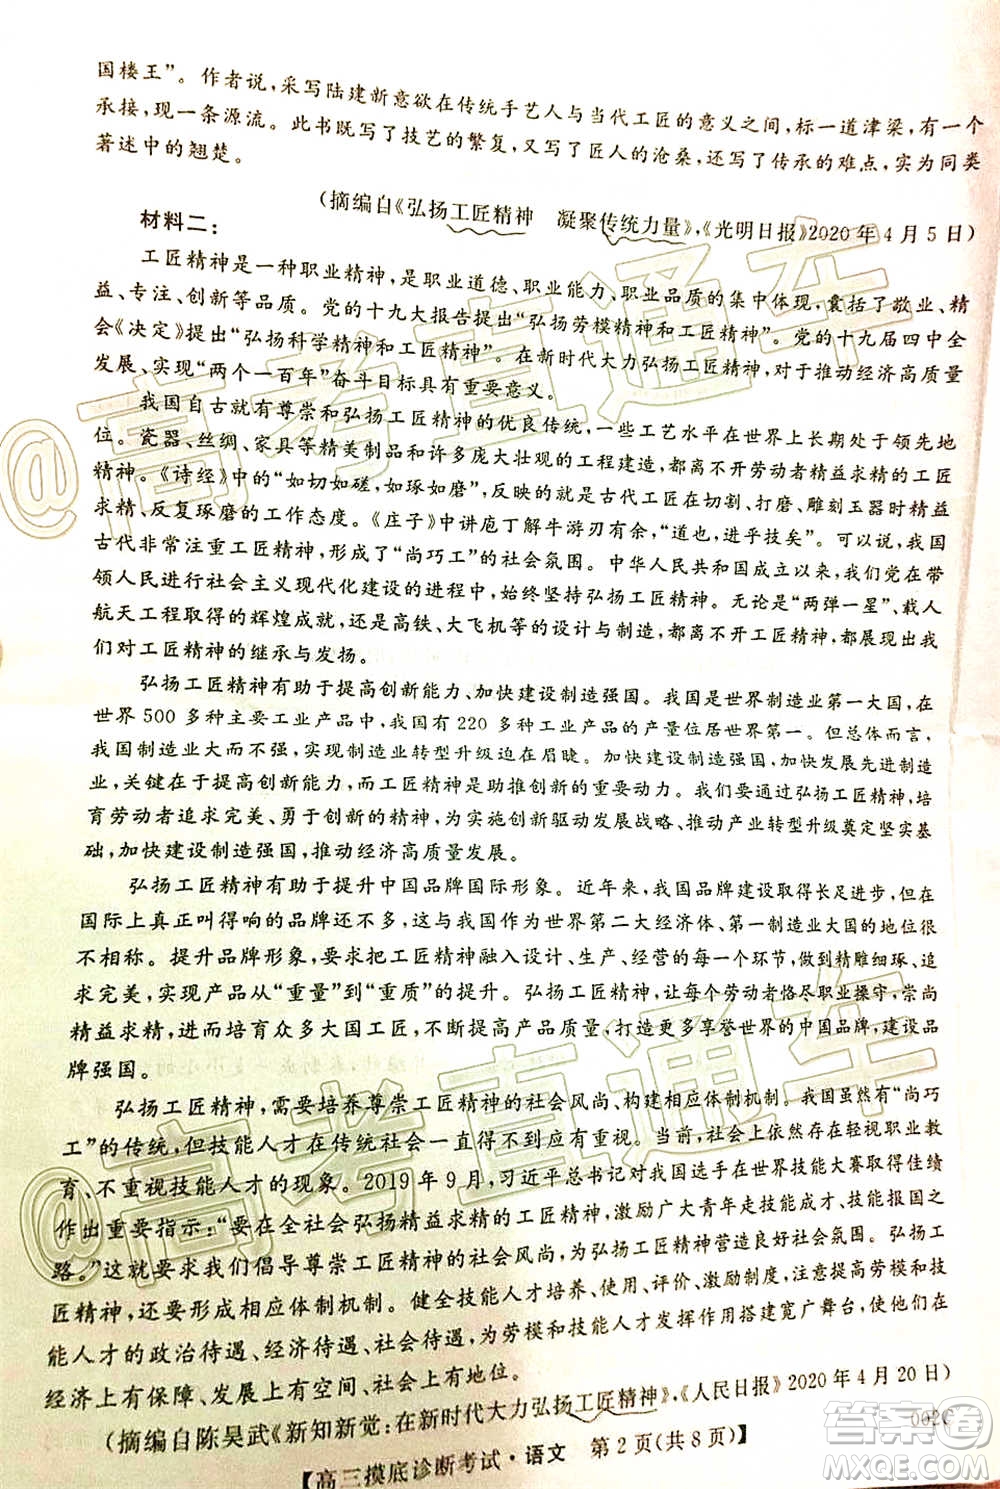 国楼王”。作者说,采写陆建新意欲在传统手艺人与当代工匠的意义之间,标一道津梁,有一个
承接,现一条源流。此书既写了技艺的繁复,又写了匠人的沧桑,还写了传承的难点,实为同类
著述中的翘楚。
(摘编自《弘扬工匠精神 凝聚传统力量》,《光明日报》2020年4月5日)
材料二:
工匠精神是一种职业精神,是职业道德、职业能力、职业品质的集中体现,囊括了敬业、精
益、专注、创新等品质。党的十九大报告提出“弘扬劳模精神和工匠精神”。党的十九届四中全
会《决定》提出“弘扬科学精神和工匠精神”。在新时代大力弘扬工匠精神,对于推动经济高质量
发展、实现“两个一百年”奋斗目标具有重要意义。
我国自古就有尊崇和弘扬工匠精神的优良传统,一些工艺水平在世界上长期处于领先地
位。瓷器、丝绸、家具等精美制品和许多庞大壮观的工程建造,都离不开劳动者精益求精的工匠
精神。《诗经》中的“如切如磋,如琢如磨”,反映的就是古代工匠在切割、打磨、雕刻玉器时精益
求精、反复琢磨的工作态度。《庄子》中讲庖丁解牛游刃有余,“道也,进乎技矣”。可以说,我国
古代非常注重工匠精神,形成了“尚巧工”的社会氛围。中华人民共和国成立以来,我党在带
领人民进行社会主义现代化建设的进程中,始终坚持弘扬工匠精神。无论是“两弹一星”、载人
航天工程取得的辉煌成就,还是高铁、大飞机等的设计与制造,都离不开工匠精神,都离不开我
们对工匠精神的继承与发扬。
弘扬工匠精神有助于提高创新能力、加快建设制造强国。我国是世界制造业第一大国,在
世界500多种主要工业产品中,我国有220多种工业产品的产量位居世界第一。但总体而言,
我国制造业大而不强,实现制造业转型升级迫在眉睫。加快建设制造强国,加快发展先进制造
业,关键在于提高创新能力,而工匠精神是助推创新的重要动力。我们要通过弘扬工匠精神,培
育劳动者追求完美、勇于创新的精神,为实施创新驱动发展战略、推动产业转型升级奠定坚实基
础,加快建设制造强国,推动经济高质量发展。
弘扬工匠精神有助于提升中国品牌国际形象。近年来,我国品牌建设取得长足进步,但在
国际上真正叫得响的品牌还不多,这与我国作为世界第二大经济体、第一制造业大国的地位很
不相称。提升品牌形象,要求把工匠精神融入设计、生产、经营的每一个环节,在精雕细琢、追
求完美,实现产品从“重量”到“重质”的提升。弘扬工匠精神,让每个劳动者恪尽职业操守,崇尚
精益求精,进而培育众多大国工匠,不断提高产品质量,打造更多享誉世界的中国品牌,建设品
牌强国。
弘扬工匠精神,需要培养尊崇工匠精神的社会风尚、构建相应体制机制。我国虽然有“尚巧
工”的传统,但技能人才在传统社会一直得不到应有重视。当前,社会上依然存在轻视职业教
育、不重视技能人才的现象。2019年9月,习近平总书记对我国选手在世界技能大赛取得佳绩
作出重要指示:“要在全社会弘扬精益求精的工匠精神,激励广大青年走技能成才、技能报国之
路。”这就要求我们倡导尊崇工匠精神的社会风尚,为弘扬工匠精神营造良好社会氛围。弘扬工
匠精神,还要形成相应体制机制。健全技能人才培养、使用、评价、激励制度,注意提高劳模和技
能人才的政治待遇、经济待遇、社会待遇,为劳模和技能人才发挥作用搭建宽广舞台,使他们在
经济上有保障、发展上有空间、社会上有地位。
(摘编自陈昊武《新知新觉:在新时代大力弘扬工匠精神》,《人民日报》2020年4月20日)
【高三摸底诊断考试·语文 第2页(共8页)】
002C
@高考直通车
@高考直通车
答案圈
MXQE.COM